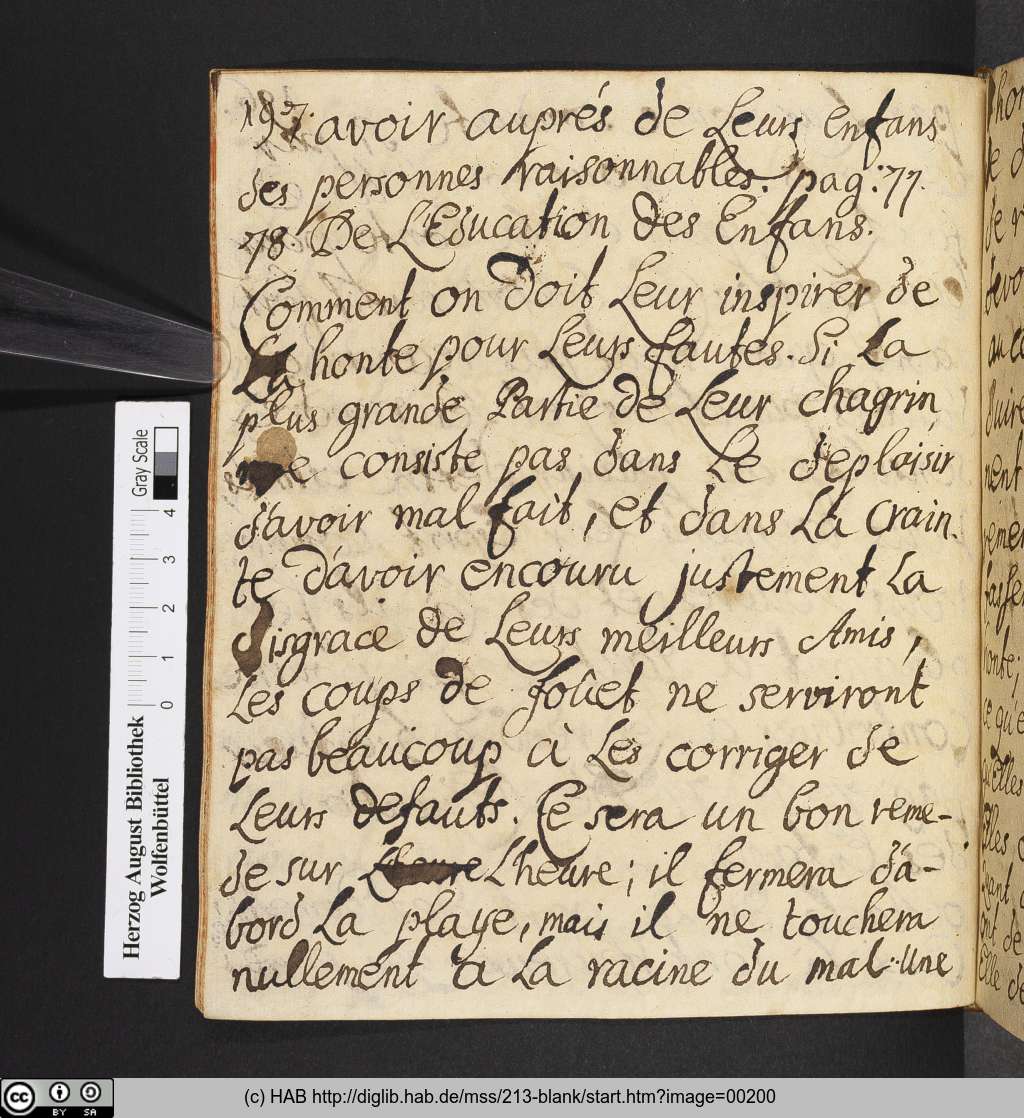 197. avoir auprés de Leurs Enfans
des personnes raisonnables. pag: 77.
78. De L'Education des Enfans.
Comment on doit Leur inspirer de
La honte pour Leurs fautes. Si La
plus grande Partie de Leur chagrin
ne consiste pas dans Le deplaisir
d'avoir mal fait, et dans La Crain-
te d'avoir encouru justement La
disgrace de Leurs meilleurs Amis,
Les coups de foûet ne serviront
pas beaucoup à Les corriger de
Leurs defauts. Ce sera un bon reme-
de sur L'heure; il fermera d'a-
bord La playe, mais il ne touchera
nullement a La racine du mal. Une
Herzog August Bibliothek
Wolfenbüttel
Gray Scale
0 1 2 3 4
cc BY SA
(c) HAB http://diglib.hab.de/mss/213-blank/start.htm?image=00200